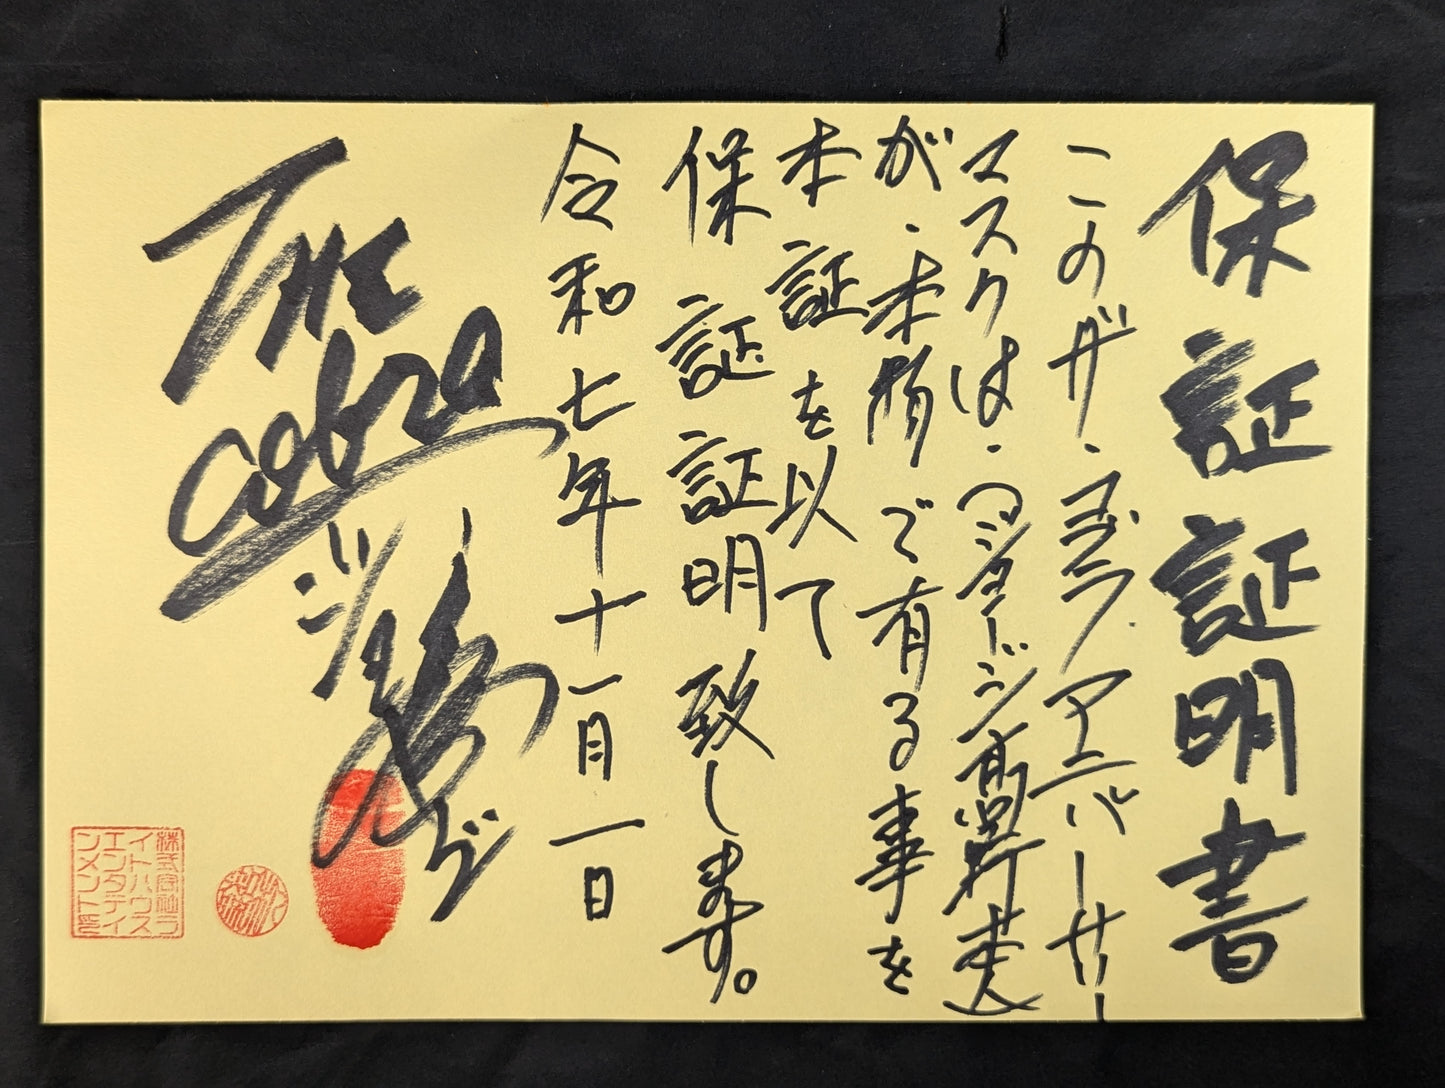 保証証明書
このザ・コブラ アニバーサー
マスクは・
が・本物で有る事を
本証を以て
保証証明致します。
令和七年十一月一日
The
Cobra
株式会社ラ
イトハウス
エンタテイ
ンメント印